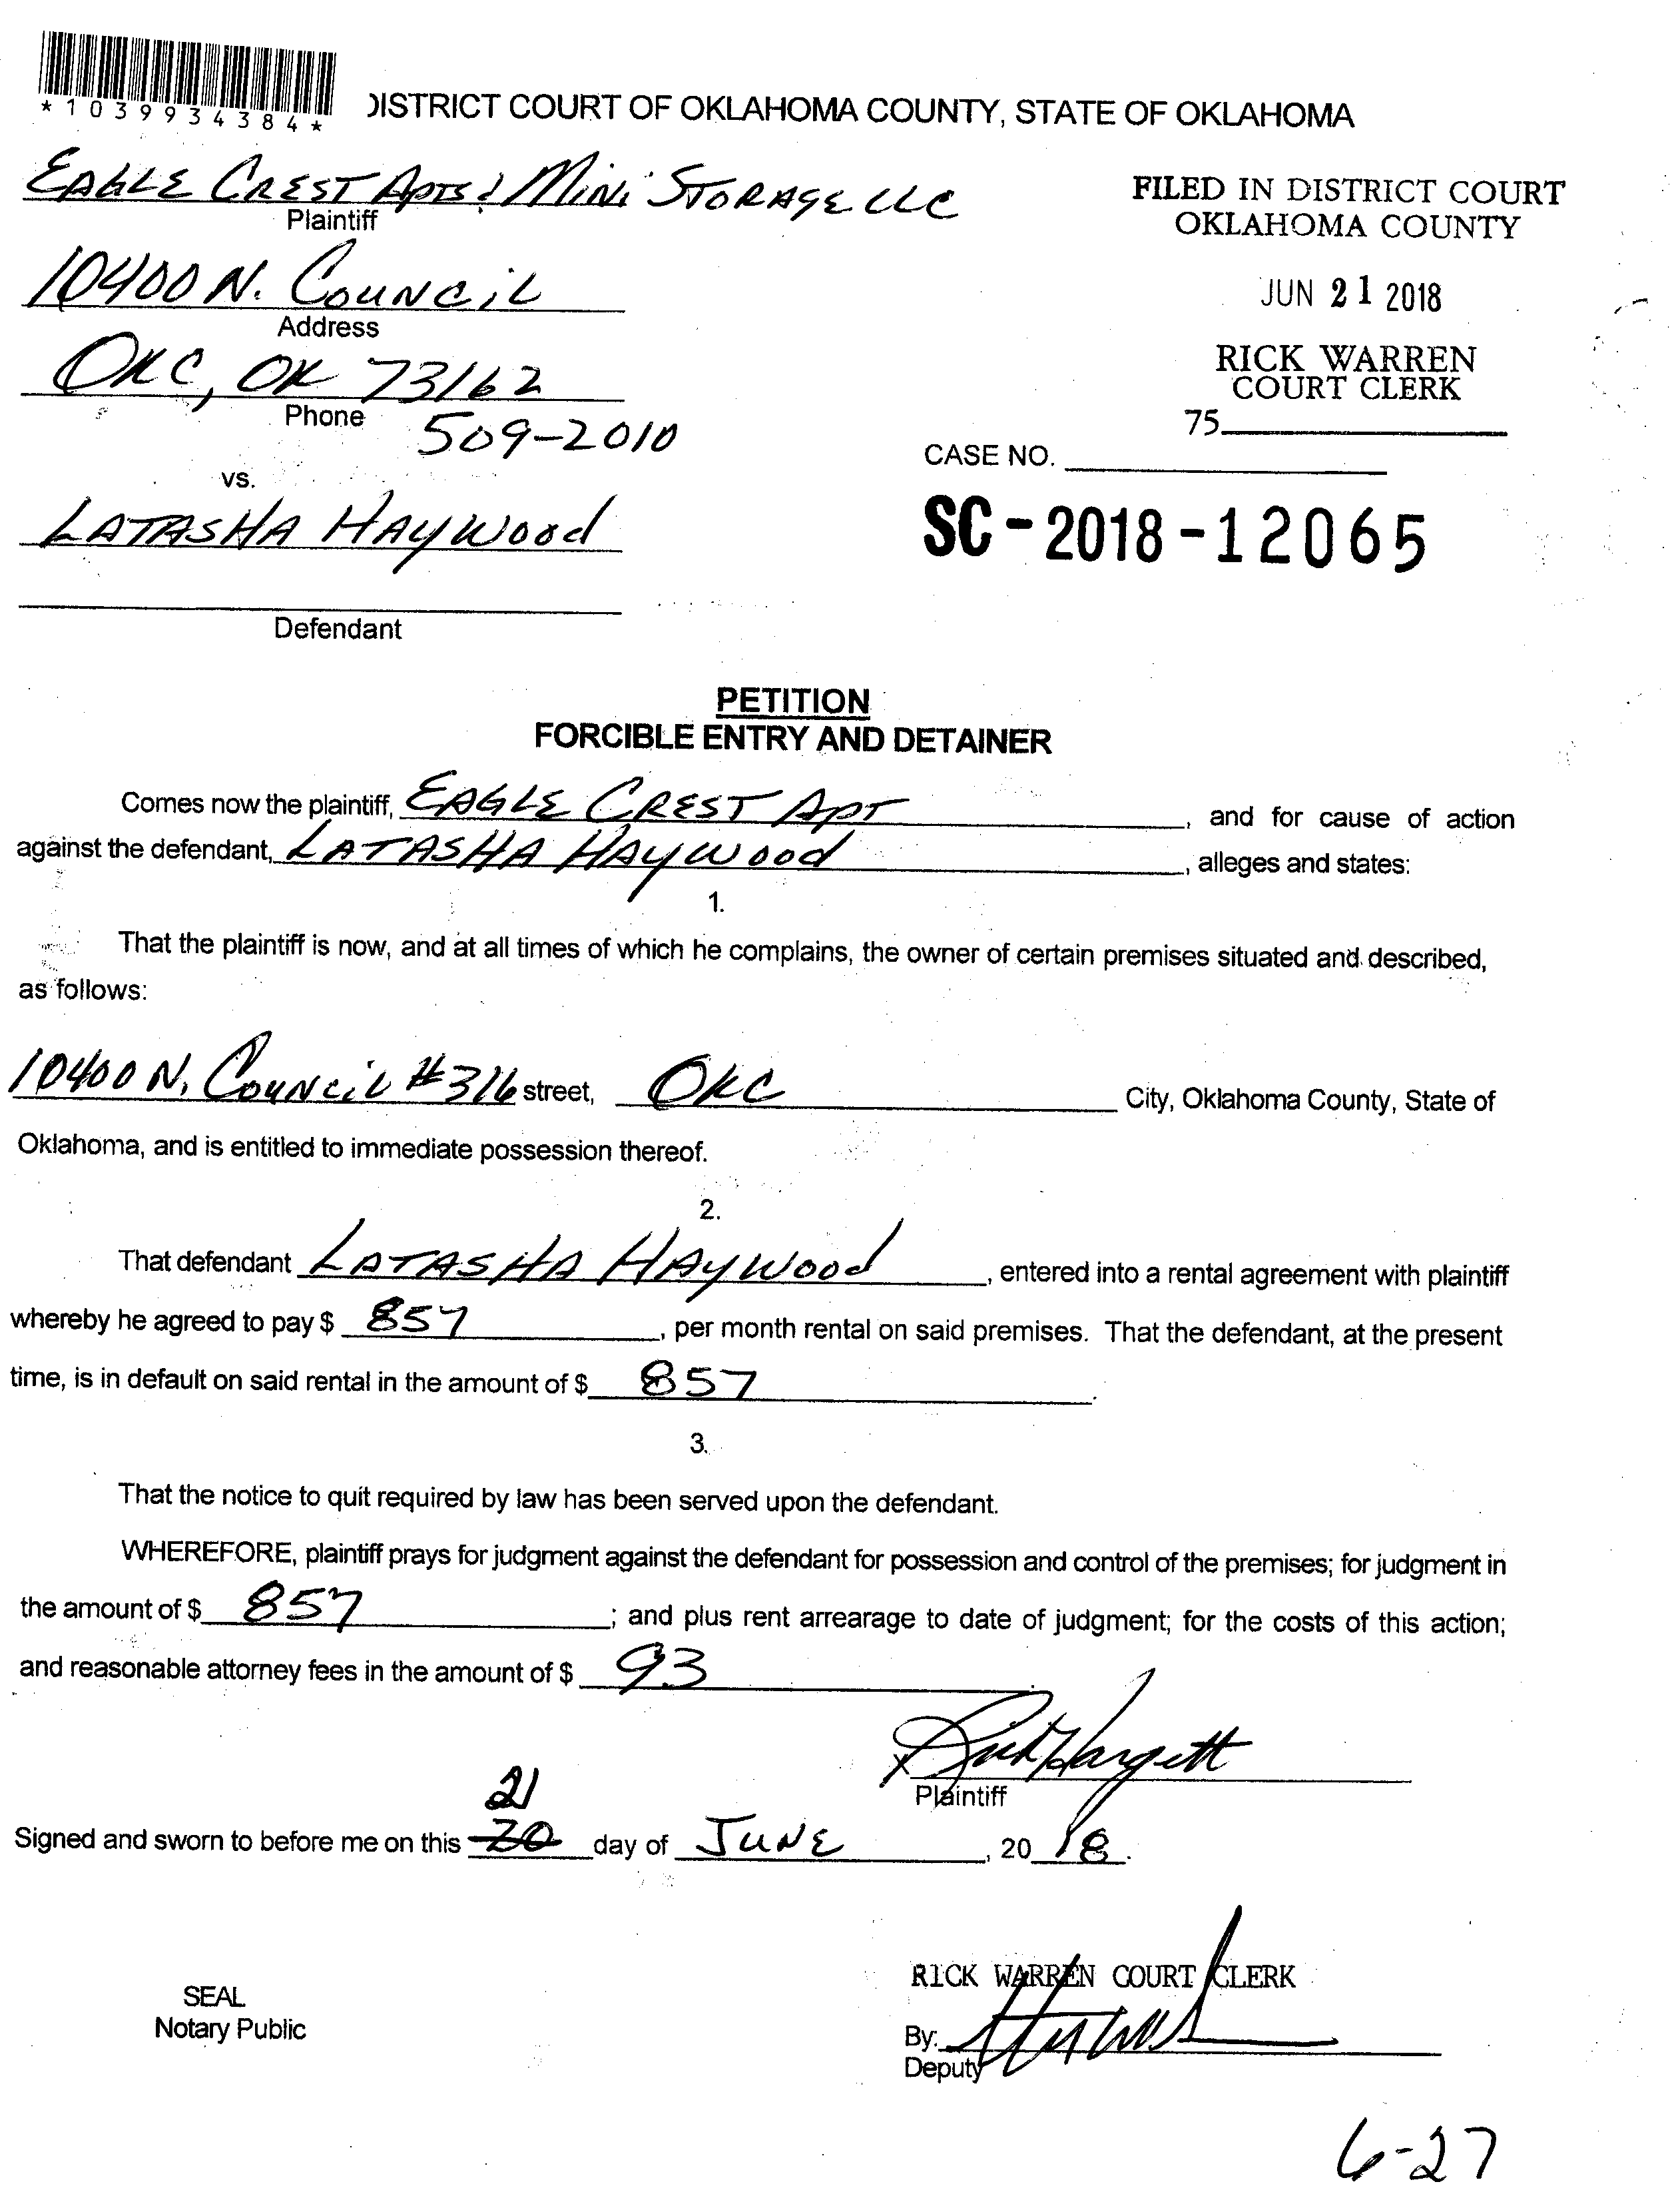 *1039934384*
DISTRICT COURT OF OKLAHOMA COUNTY, STATE OF OKLAHOMA
EAGLE CREST APTS & MINI STORAGE LLC
Plaintiff
FILED IN DISTRICT COURT
OKLAHOMA COUNTY
10400 N. COUNCIL
Address
JUN 21 2018
OKC, OK 73162
Phone 509-2010
RICK WARREN
COURT CLERK
75
CASE NO.
vs.
LATASHA HAYWOOD
SC-2018-12065
Defendant
PETITION
FORCIBLE ENTRY AND DETAINER
Comes now the plaintiff, EAGLE CREST APT, and for cause of action
against the defendant, LATASHA HAYWOOD, alleges and states:
1.
That the plaintiff is now, and at all times of which he complains, the owner of certain premises situated and described,
as follows:
10400 N. COUNCIL #316 street, OKC City, Oklahoma County, State of
Oklahoma, and is entitled to immediate possession thereof.
2.
That defendant LATASHA HAYWOOD, entered into a rental agreement with plaintiff
whereby he agreed to pay $ 857, per month rental on said premises. That the defendant, at the present
time, is in default on said rental in the amount of $ 857.
3.
That the notice to quit required by law has been served upon the defendant.
WHEREFORE, plaintiff prays for judgment against the defendant for possession and control of the premises; for judgment in
the amount of $ 857; and plus rent arrearage to date of judgment; for the costs of this action;
and reasonable attorney fees in the amount of $ 93.
x Rick Hargett
Plaintiff
21
Signed and sworn to before me on this 20 day of JUNE, 2018.
RICK WARREN COURT CLERK
SEAL
Notary Public
By:
Deputy
6-27